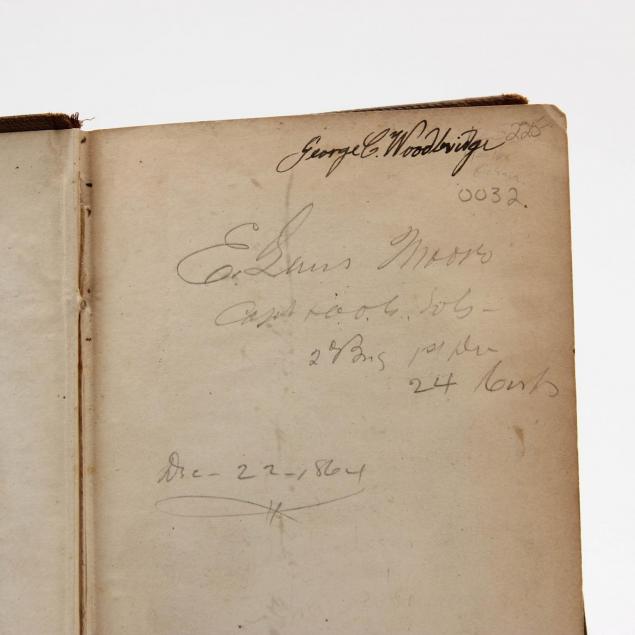 George C. Woodbridge
225
0032.
E. Lewis Moore
Capt
2d Brig 1st Div
24 Corps
Dec - 22 - 1864